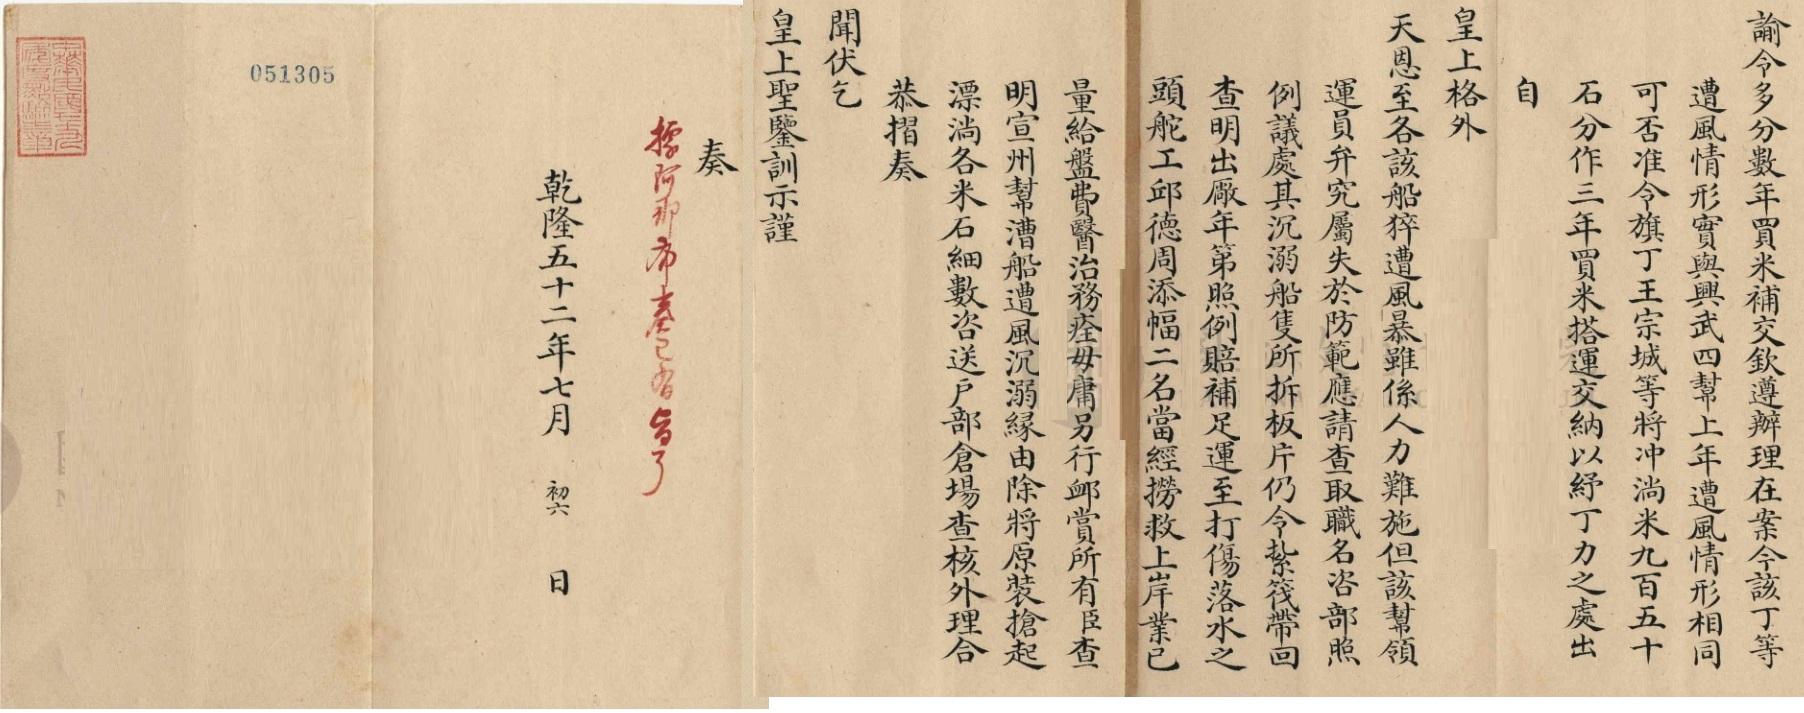 諭令多分數年買米補交欽遵辦理在案今該丁等
遭風情形實與興武四幫上年遭風情形相同
可否准令旗丁王宗城等將冲淌米九百五十
石分作三年買米搭運交納以紓丁力之處出
自
皇上格外
天恩至各該船猝遭風暴雖係人力難施但該幫領
運員弁究屬失於防範應請查取職名咨部照
例議處其沉溺船隻所拆板片仍令紮筏帶回
查明出厰年第照例賠補足運至打傷落水之
頭舵工邱德周添幅二名當經撈救上岸業已
量給盤費醫治務痊毋庸另行卹賞所有臣查
明宣州幫漕船遭風沉溺緣由除將原裝搶起
漂淌各米石細數咨送戶部倉場查核外理合
恭摺奏
聞伏乞
皇上聖鑒訓示謹
奏
據阿那布奏已有旨了
乾隆五十二年七月 初六 日
051305